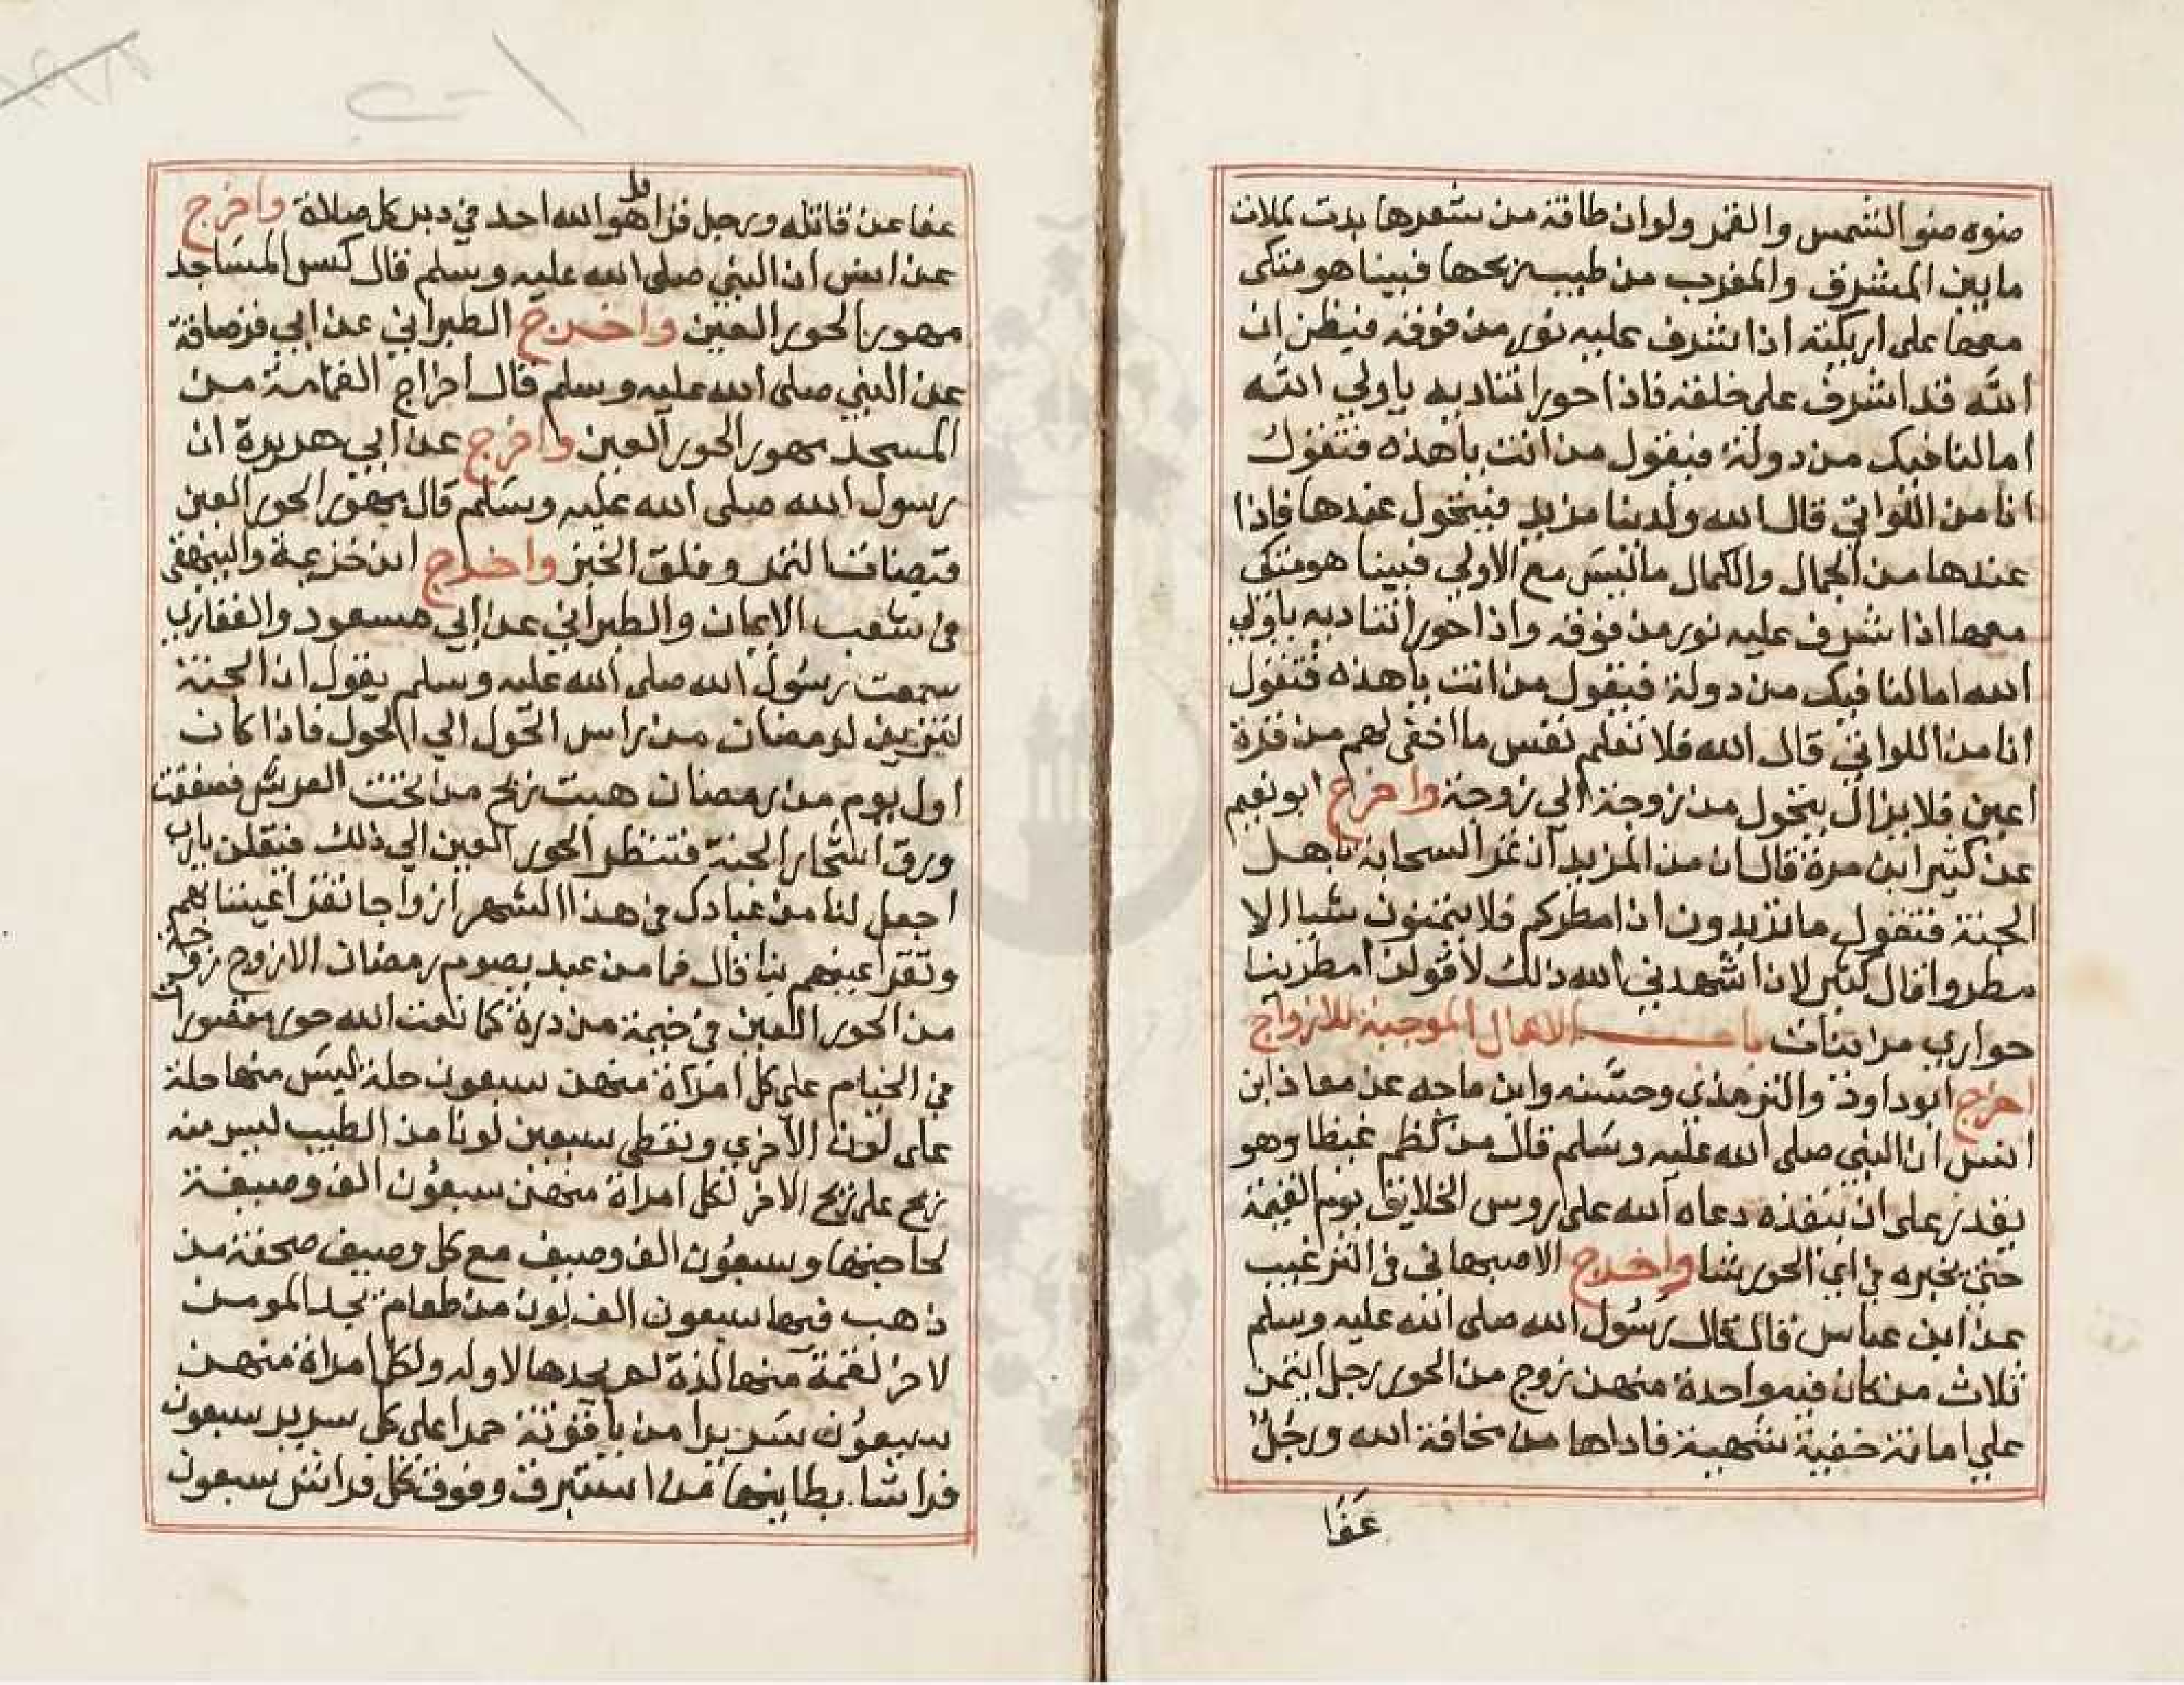 ضوه ضو الشمس والقمر ولو ان طاقة من شعرها بدت لملات
ما بين المشرق والمغرب من طيب ريحها فبينا هو متكى
معها على اريكته اذ اشرف عليه نور من فوقه فيظن ان
الله قد اشرف على خلقه فاذا حورا تناديه ياولي الله
اما لنا فيك من دولة فيقول من انت ياهذه فتقول
انا من اللواتي قال الله ولدينا مزيد فيتحول عندها فاذا
عندها من الجمال والكمال ما ليس مع الاولي فبينا هو متكى
معها اذا شرف عليه نور من فوقه واذا حورا تناديه ياولي
الله اما لنا فيك من دولة فيقول من انت ياهذه فتقول
انا من اللواتي قال الله فلا تعلم نفس ما اخفى لهم من قرة
اعين فلا يزال يتحول من زوجة الى زوجة واخرج ابو نعيم
عن كثير ابن مرة قال ان من المزيد ان تمر السحابة باهل
الجنة فتقول ما تريدون ان امطركم فلا يتمنون شيا الا
مطروا قال كثير لان اشهدني الله ذلك لاقولن امطرينا
حواري مزينات باب الاعمال الموجبة للازواج
اخرج ابو داود والترمذي وحسنه وابن ماجه عن معاذ ابن
انس ان النبي صلى الله عليه وسلم قال من كظم غيظا وهو
يقدر على ان ينفذه دعاه الله على روس الخلايق يوم القيمة
حتى يخيره في اي الحور يشا واخرج الاصبهاني في الترغيب
عن ابن عباس قال قال رسول الله صلى الله عليه وسلم
ثلاث من كان فيه واحدة منهن زوج من الحور رجل ايتمن
علي امانة خفية شهية فاداها من مخافة الله ورجل
عفا
عفا عن قاتله ورجل قرا قل هو الله احد في دبر كل صلاة واخرج
عن انس ان النبي صلى الله عليه وسلم قال كنس المساجد
مهور الحور العين واخرج الطبراني عن ابي قرصافة
عن النبي صلى الله عليه وسلم قال اخراج القمامة من
المسجد مهور الحور العين واخرج عن ابي هريرة ان
رسول الله صلى الله عليه وسلم قال مهور الحور العين
قبضات التمر وفلق الخبز واخرج ابن خزيمة والبيهقى
في شعب الايمان والطبراني عن ابي مسعود والغفاري
سمعت رسول الله صلى الله عليه وسلم يقول ان الجنة
لتتزين لرمضان من راس الحول الي الحول فاذا كان
اول يوم من رمضان هبت ريح من تحت العرش فصفقت
ورق اشجار الجنة فتنظر الحور العين الي ذلك فيقلن يارب
اجعل لنا من عبادك في هذا الشهر ازواجا تقر اعيننا بهم
وتقر اعينهم بنا قال فما من عبد يصوم رمضان الا زوج زوجة
من الحور العين في خيمة من درة كما نعت الله حور مقصورات
في الخيام على كل امراة منهن سبعون حلة ليس منها حلة
على لون الاخري ويعطى سبعين لونا من الطيب ليس منه
ريح على ريح الاخر لكل امراة منهن سبعون الف وصيفة
لحاجتها وسبعون الف وصيف مع كل وصيف صحفة من
ذهب فيها سبعون الف لون من طعام يجد المومن
لاخر لقمة منها لذة لم يجدها لاوله ولكل امراة منهن
سبعون سريرا من ياقوتة حمرا على كل سرير سبعون
فراشا بطاينها من استبرق وفوق كل فراش سبعون